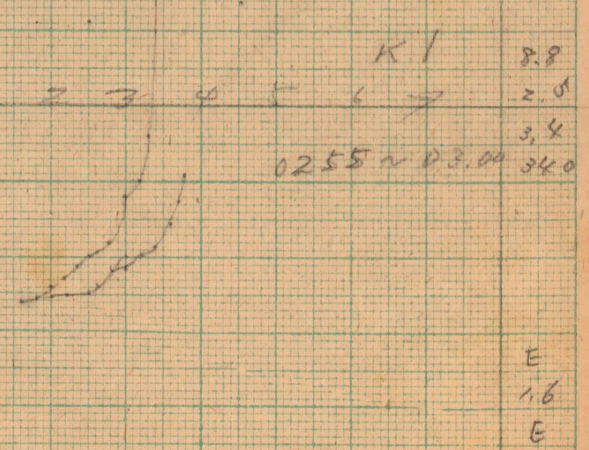 K 1
8.8
2 3 4 5 6 7
2.5
3.4
0255 ~ 03.00
340
E
1.6
E